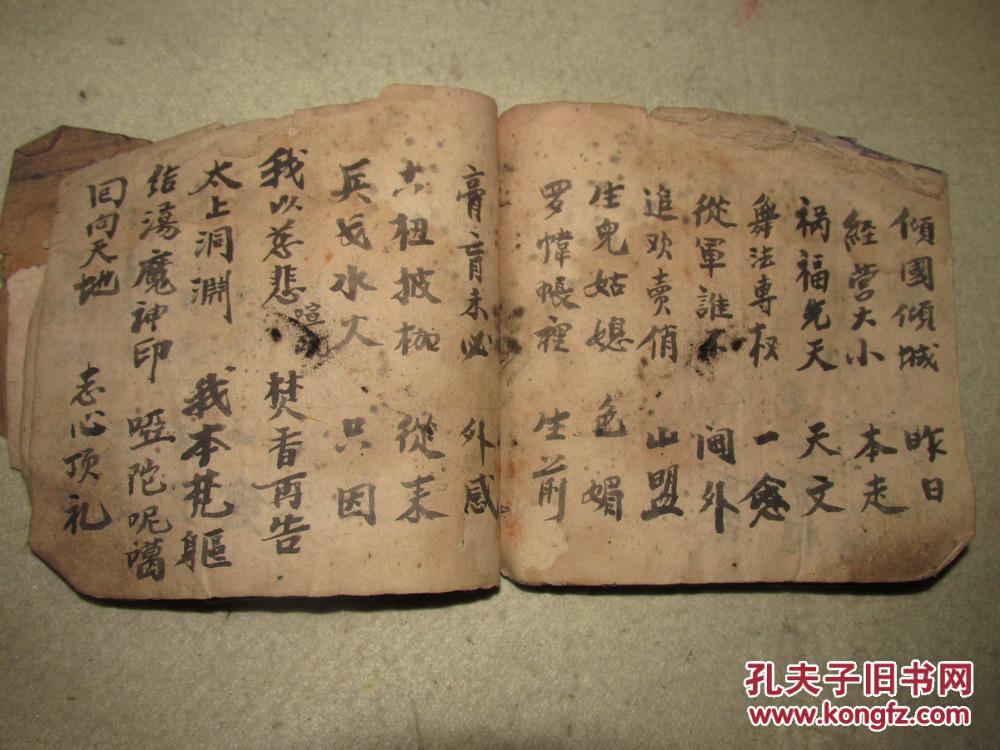 傾國傾城 昨日
經营大小 本走
祸福先天 天文
舞法專权 一愈
從軍誰不 闽外
追欢卖俏 山盟
生兒姑媳 色媚
罗幃帳裡 生前
膏肓未必 外感
六杻披枷 從来
兵戈水火 只因
我以慈悲 喧 焚香再告
太上洞淵 我本梵軀
结蕩魔神印 哑陀呢噶
回向天地 志心顶礼
孔夫子旧书网
www.kongfz.com